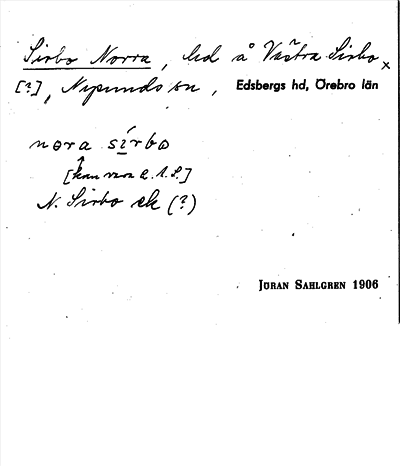 Sirbo Norra, hd å Västra Sirbo
[?], Nysunds sn, Edsbergs hd, Örebro län
nora sírbo
[kan vara
N. Sirbo ek (?)
JÖRAN SAHLGREN 1906